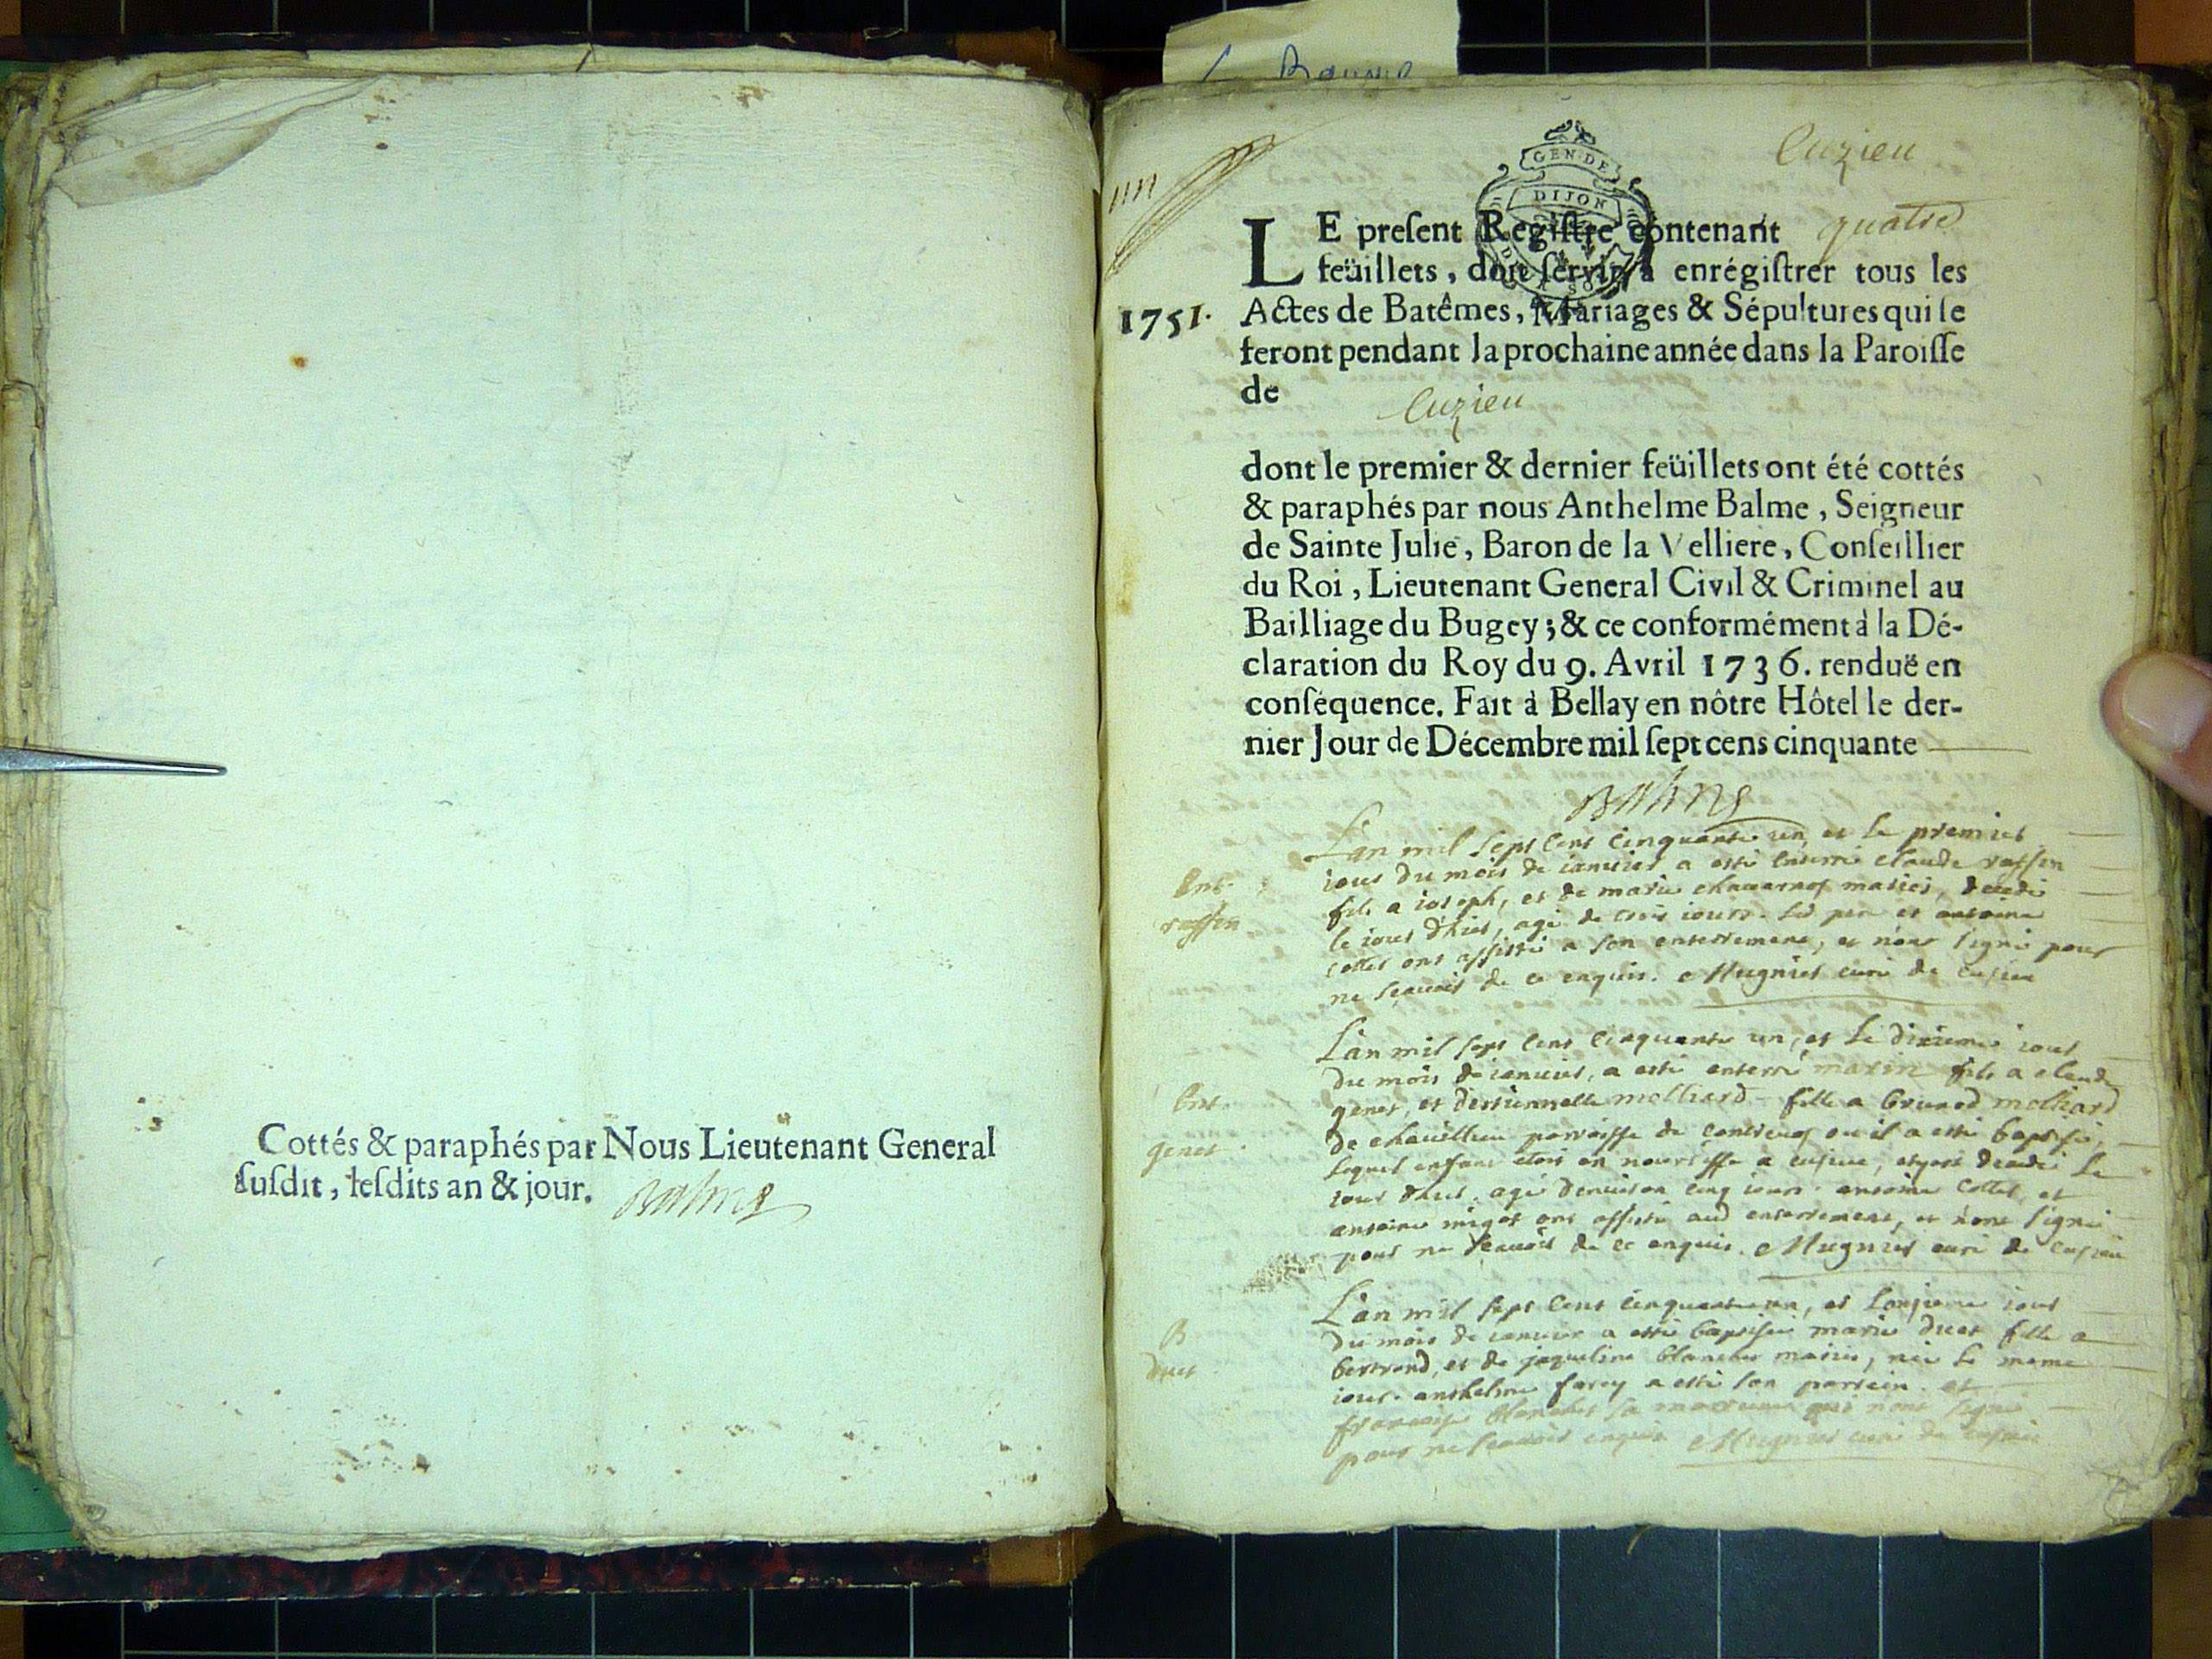 Cottés & paraphés par Nous Lieutenant General
susdit, lesdits an & jour. Balme
Cuzieu
un
GEN·DE
DIJON
LE present Registre contenant quatre
feüillets, doit servir à enrégistrer tous les
1751. Actes de Batêmes, Mariages & Sépultures qui se
feront pendant la prochaine année dans la Paroisse
de
Cuzieu
dont le premier & dernier feüillets ont été cottés
& paraphés par nous Anthelme Balme, Seigneur
de Sainte Julie, Baron de la Velliere, Conseillier
du Roi, Lieutenant General Civil & Criminel au
Bailliage du Bugey; & ce conformément à la Dé-
claration du Roy du 9. Avril 1736. renduë en
conséquence. Fait à Bellay en nôtre Hôtel le der-
nier Jour de Décembre mil sept cens cinquante
Balme
Ent.
raffin
L'an mil sept cent cinquante un, et le premier
iour du mois de ianvier a esté enterré claude raffin
fils a ioseph, et de marie mariés, decedé
le iour d'hier, agé de trois iours. Son pere et antoine
collet ont assisté a son enterrement, et n'ont signé pour
ne sçavoir de ce enquis. Mugnier curé de cusieu
Ent.
genet
L'an mil sept cent cinquante un, et le dixieme iour
du mois de ianvier, a esté enterré marin fils a claude
genet, et d'estiennette molliard fille a brunod molliard
de parroisse de ou il a esté baptisé,
lequel enfant etoit en nourrisse a cusieu, et decedé le
iour d'hier, agé d'environ cinq iours. antoine collet, et
antoine migot ont assisté aud enterrement, et n'ont signé
pour ne sçavoir de ce enquis. Mugnier curé de cusieu
B
duet
L'an mil sept cent cinquante un, et l'onzieme iour
du mois de ianvier a esté baptisée marie duet fille a
bertrand, et de jaqueline blanchet mariés, née le meme
iour. anthelme farcy a esté son parrein. et
françoise blanchet sa marreine qui n'ont signé
pour ne sçavoir enquis Mugnier curé de cusieu